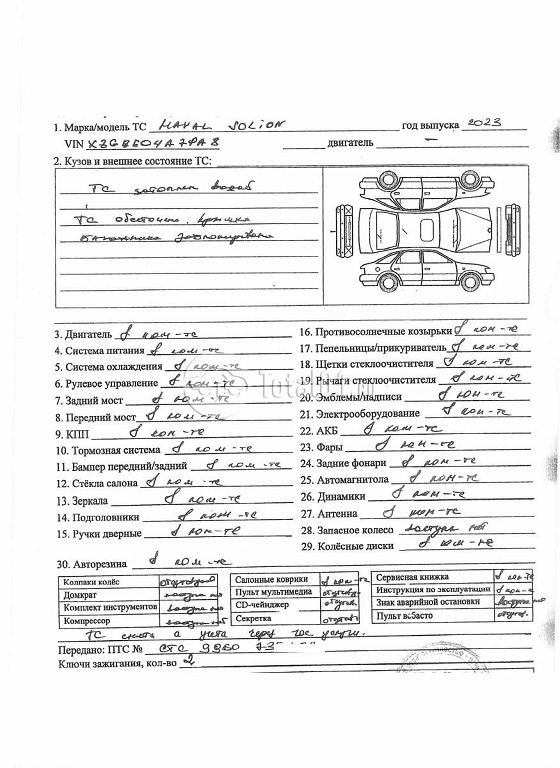 1. Марка/модель ТС HAVAL JOLION год выпуска 2023
VIN двигатель —
2. Кузов и внешнее состояние ТС:
ТС затоплен водой
ТС обесточено, крышка
багажника заблокирована
3. Двигатель в ком-те
4. Система питания в ком-те
5. Система охлаждения в ком-те
6. Рулевое управление в ком-те
7. Задний мост в ком-те
8. Передний мост в ком-те
9. КПП в ком-те
10. Тормозная система в ком-те
11. Бампер передний/задний в ком-те
12. Стёкла салона в ком-те
13. Зеркала в ком-те
14. Подголовники в ком-те
15. Ручки дверные в ком-те
16. Противосолнечные козырьки в ком-те
17. Пепельницы/прикуриватель в ком-те
18. Щетки стеклоочистителя в ком-те
19. Рычаги стеклоочистителя в ком-те
20. Эмблемы/надписи в ком-те
21. Электрооборудование в ком-те
22. АКБ в ком-те
23. Фары в ком-те
24. Задние фонари в ком-те
25. Автомагнитола в ком-те
26. Динамики в ком-те
27. Антенна в ком-те
28. Запасное колесо доступа нет
29. Колёсные диски в ком-те
30. Авторезина в ком-те
Total01.ru
Колпаки колёс
Домкрат доступа нет
Комплект инструментов доступа нет
Компрессор доступа нет
Салонные коврики в ком-те
Пульт мультимедиа отсутв.
CD-чейнджер отсутв.
Секретка отсутв.
Сервисная книжка в ком-те
Инструкция по эксплуатации в ком-те
Знак аварийной остановки доступа нет
Пульт вебасто отсутв.
ТС снята с учета через гос услуги.
Передано: ПТС № СТС 9960
Ключи зажигания, кол-во 2